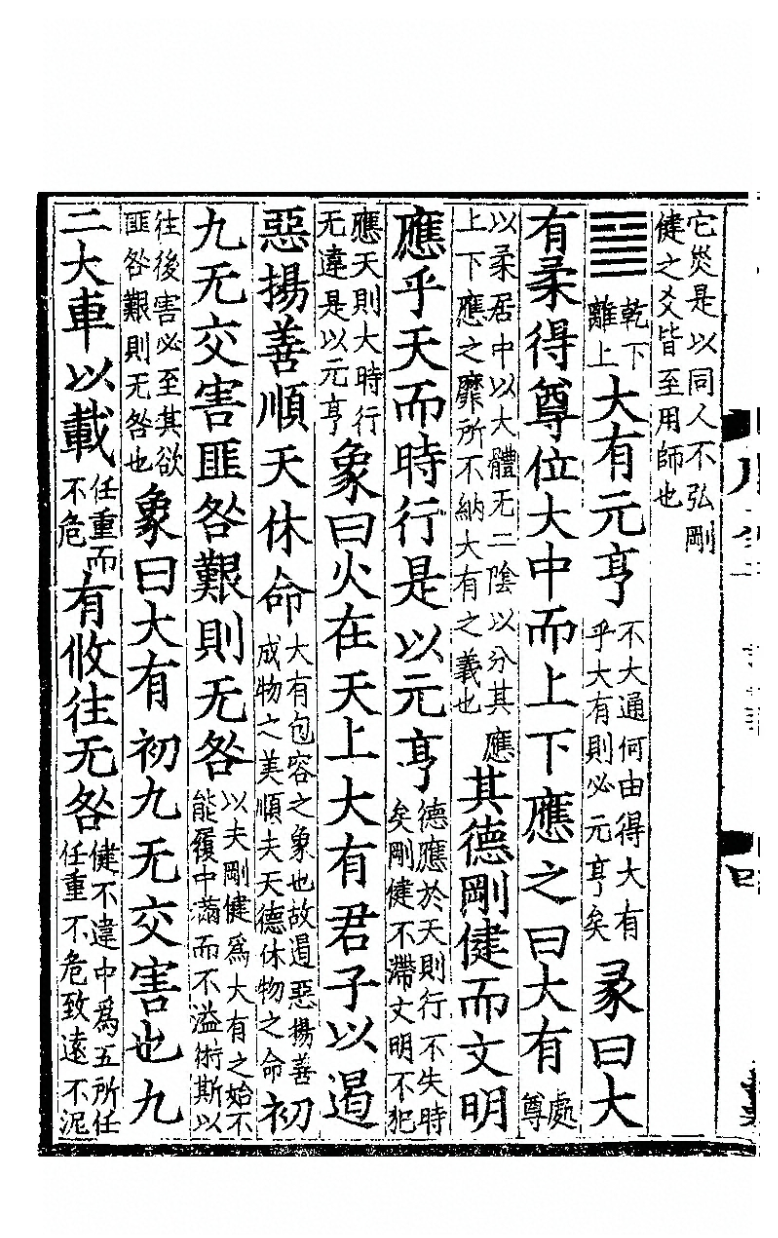 它災是以同人不弘剛
健之爻皆至用師也
䷍乾下離上大有元亨不大通何由得大有乎大有則必元亨矣彖曰大
有柔得尊位大中而上下應之曰大有處尊
以柔居中以大體无二陰以分其應上下應之靡所不納大有之義也其德剛健而文明
應乎天而時行是以元亨德應於天則行不失時矣剛健不滯文明不犯
應天則大時行无違是以元亨象曰火在天上大有君子以遏
惡揚善順天休命大有包容之象也故遏惡揚善成物之美順夫天德休物之命初
九无交害匪咎艱則无咎以夫剛健爲大有之始不能履中滿而不溢術斯以
往後害必至其欲匪咎艱則无咎也象曰大有初九无交害也九
二大車以載任重而不危有攸往无咎健不違中爲五所任任重不危致遠不泥